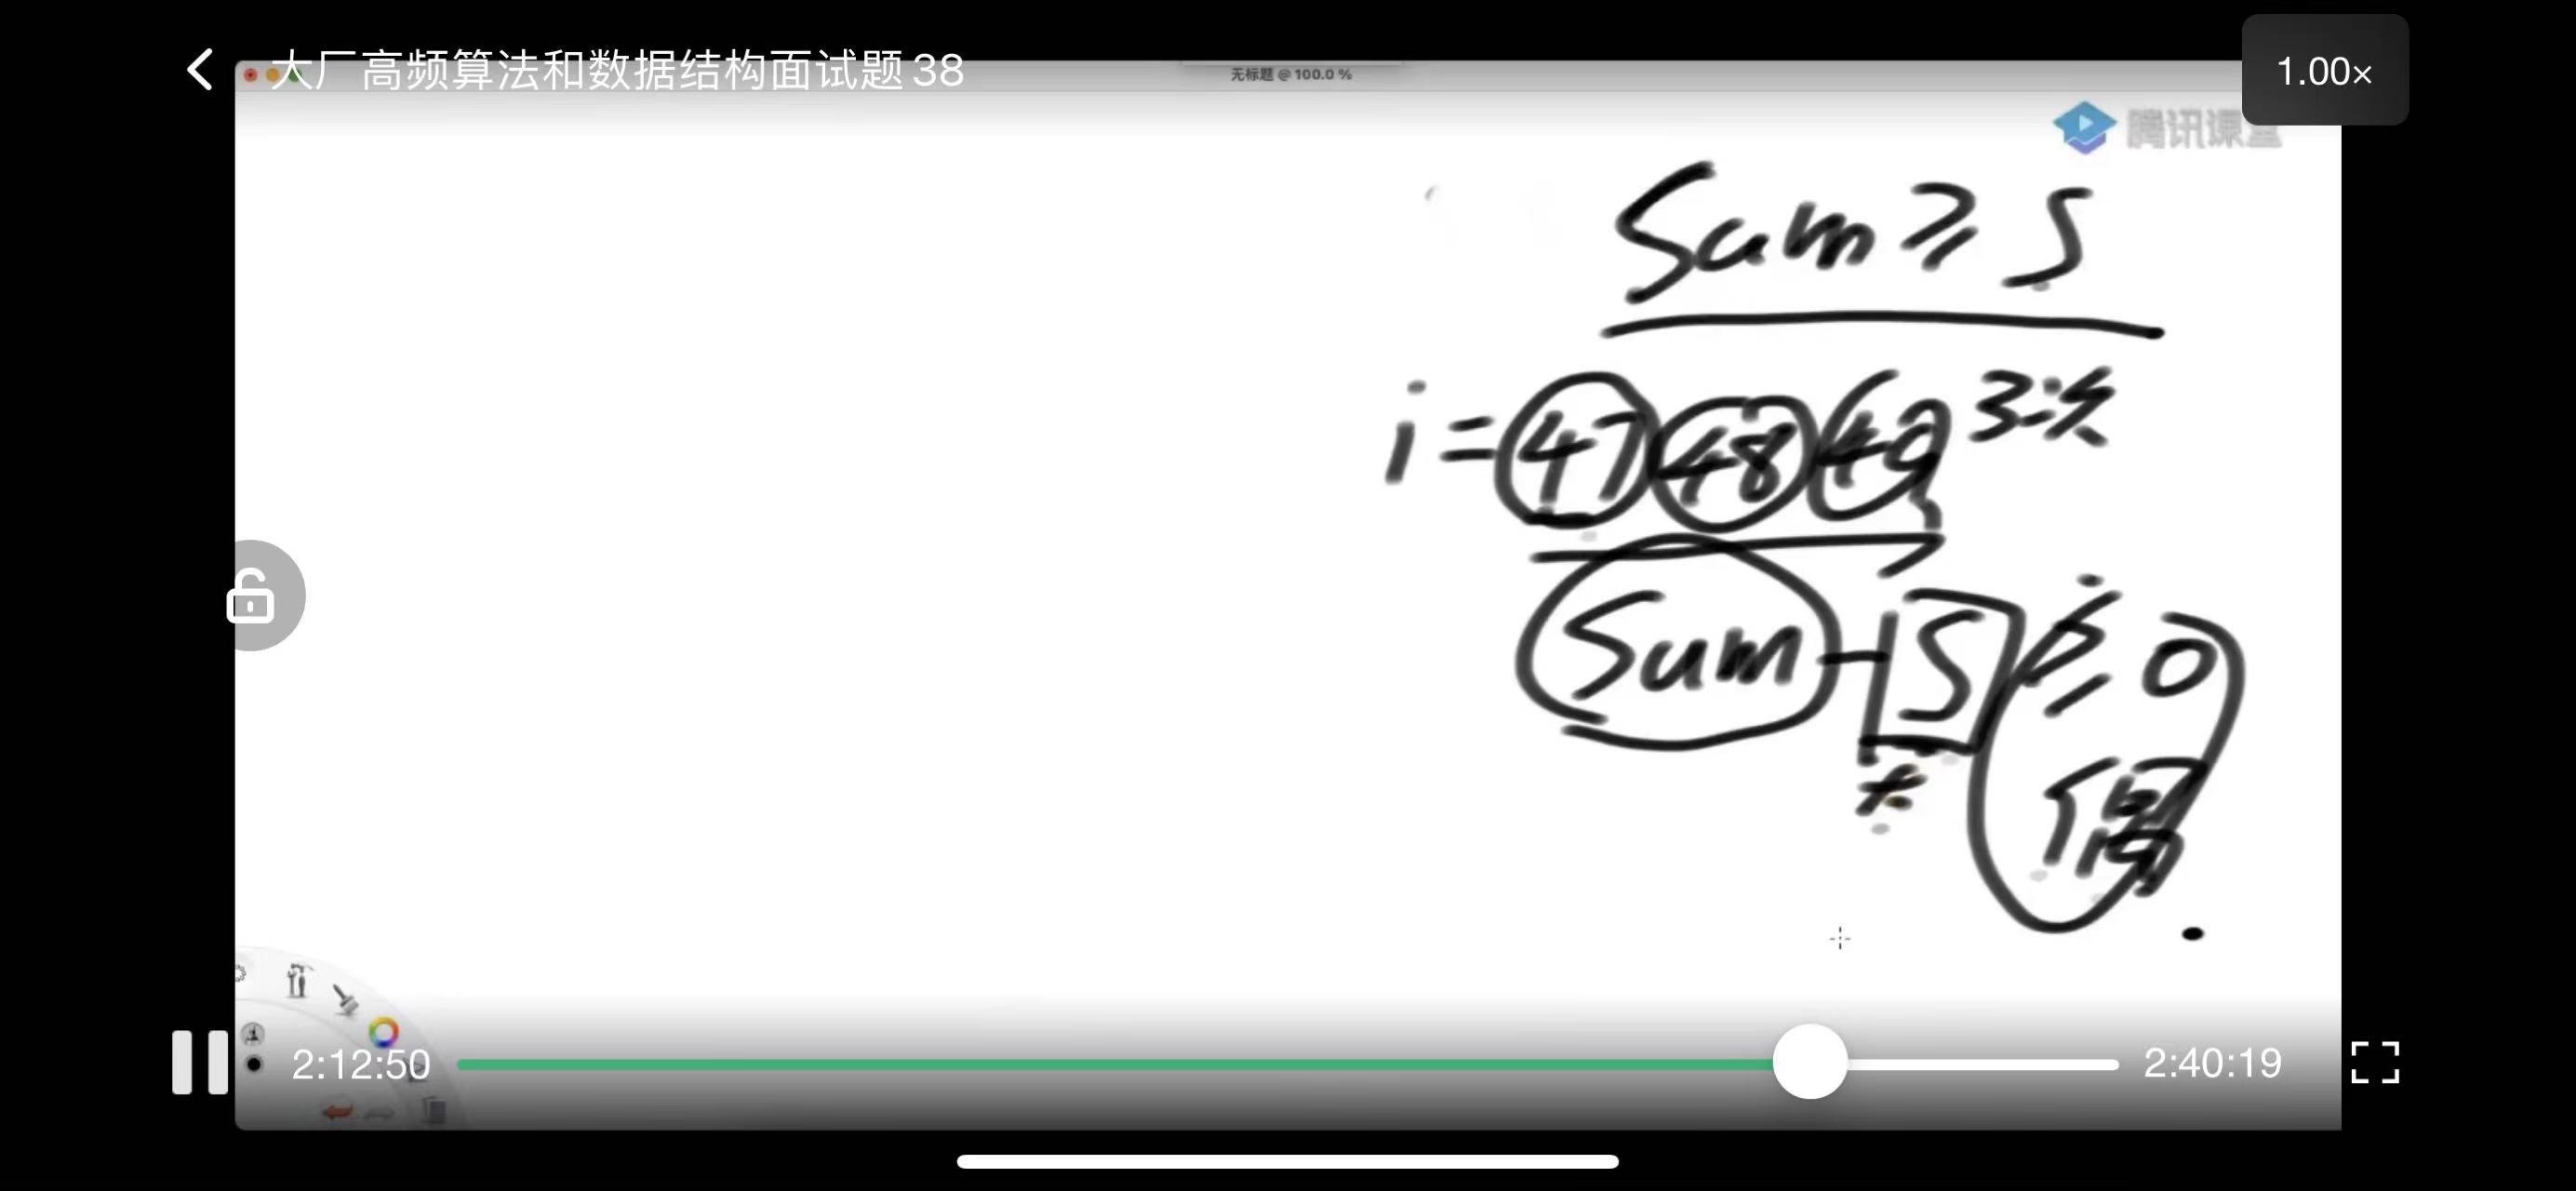 大厂高频算法和数据结构面试题38
无标题 @ 100.0 %
1.00×
腾讯课堂
Sum ≥ S
i = 47 48 49 3次
Sum - S ≥ 0
偶
2:12:50
2:40:19